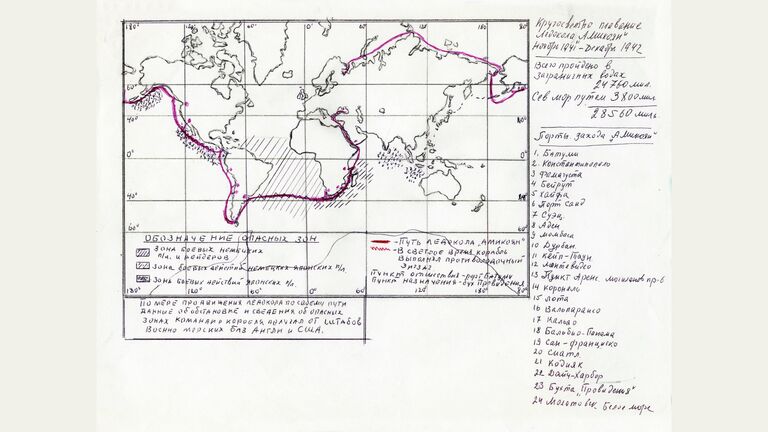 Кругосветно плавание
Ледокола "А. Микоян"
Ноябрь 1941 - Декабрь 1942
Всего пройдено в
заграничных водах
24760 мил.
Сев мор путем 3800 мил
28560 миль
Порты захода "А Микоян"
1. Батуми
2. Константинополь
3 Фамагуста
4 Бейрут
5 Хайфа
6 Порт Саид
7 Суэц
8 Аден
9 Момбаса
10 Дурбан
11 Кейп-Таун
12
13 Пункт Аренс
14 Коронель
15 Лота
16 Вальпараисо
17 Кальяо
18 Бальбоа-Панама
19 Сан-франциско
20 Сиатл
21 Кодияк
22 Датч-Харбор
23 Бухта "Провидения"
24 Белое море
180° 120° 60° 0° 60° 120° 180
80°
60°
40°
0°
40°
60°
ОБОЗНАЧЕНИЕ ОПАСНЫХ ЗОН
ЗОНА БОЕВЫХ НЕМЕЦКИХ
П/Л. И РЕЙДЕРОВ
ЗОНА БОЕВЫХ ДЕЙСТВИЙ НЕМЕЦКИХ ЯПОНСКИХ П/Л.
ЗОНА БОЕВЫХ ДЕЙСТВИЯ ЯПОНСКИХ П/Л.
- ПУТЬ ЛЕДОКОЛА "А МИКОЯН"
- В СВЕТЛОЕ ВРЕМЯ КОРАБЛЬ
ВЫПОЛНЯЛ ПРОТИВОЛОДОЧНЫЙ
ЗИГЗАГ
ПУНКТ ОТШЕСТВИЯ - БАТУМИ
ПУНКТ НАЗНАЧЕНИЯ - БУХ ПРОВИДЕНИЯ
180° 120° 60° 0° 60° 120° 180°
ПО МЕРЕ ПРОДВИЖЕНИЯ ЛЕДОКОЛА ПО СВОЕМУ ПУТИ
ДАННЫЕ ОБ ОБСТАНОВКЕ И СВЕДЕНИЯ ОБ ОПАСНЫХ
ЗОНАХ КОМАНДИР КОРАБЛЯ ПОЛУЧАЛ ОТ ШТАБОВ
ВОЕННО МОРСКИХ БАЗ АНГЛИ И США.